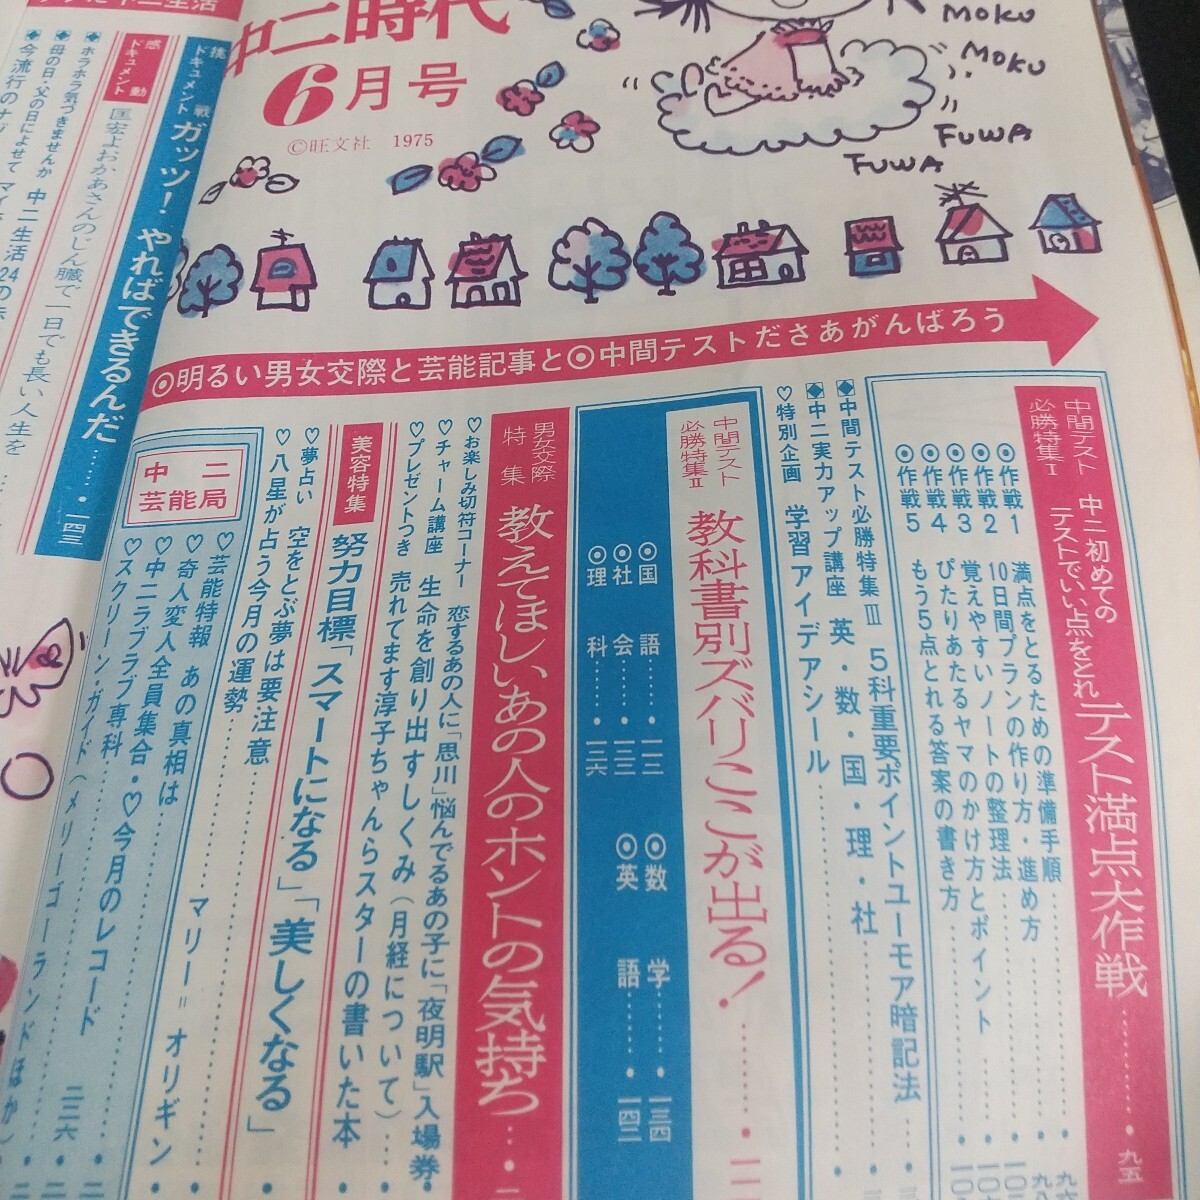 中二時代
6月号
©旺文社 1975
MOKU
MOKU
FUWA
FUWA
◎明るい男女交際と芸能記事と◎中間テストださあがんばろう
中間テスト
必勝特集Ⅰ
中二初めての
テストでいい点をとれ
テスト満点大作戦……・九五
◎作戦1 満点をとるための準備手順
◎作戦2 10日間プランの作り方・進め方
◎作戦3 覚えやすいノートの整理法
◎作戦4 ぴたりあたるヤマのかけ方とポイント
◎作戦5 もう5点とれる答案の書き方
◆中間テスト必勝特集Ⅲ 5科重要ポイントユーモア暗記法
◆中二実力アップ講座 英・数・国・理・社
♡特別企画 学習アイデアシール
中間テスト
必勝特集Ⅱ
教科書別ズバリここが出る!
◎国語……・一一二
◎社会……・一二二
◎理科……・一二六
◎数学……・一三四
◎英語……・一四二
男女交際
特集
教えてほしいあの人のホントの気持ち
♡お楽しみ切符コーナー 恋するあの人に「思川」悩んでるあの子に「夜明駅」入場券
♡チャーム講座 生命を創り出すしくみ(月経について)
♡プレゼントつき 売れてます淳子ちゃんらスターの書いた本
美容特集
努力目標「スマートになる」「美しくなる」
♡夢占い 空をとぶ夢は要注意
♡八星が占う今月の運勢
中二
芸能局
♡芸能特報 あの真相は マリー=オリギン
♡奇人変人全員集合・♡今月のレコード
♡中二ラブラブ専科 二三六
♡スクリーン・ガイド(メリーゴーランドほか)
挑戦
ドキュメント
ガッツ!やればできるんだ……・一四三
感動
ドキュメント
匡宏よおかあさんのじん臓で一日でも長い人生を
◆ホラホラ気づきませんか 中二生活24の
◆母の日・父の日によせて
◆今流行の